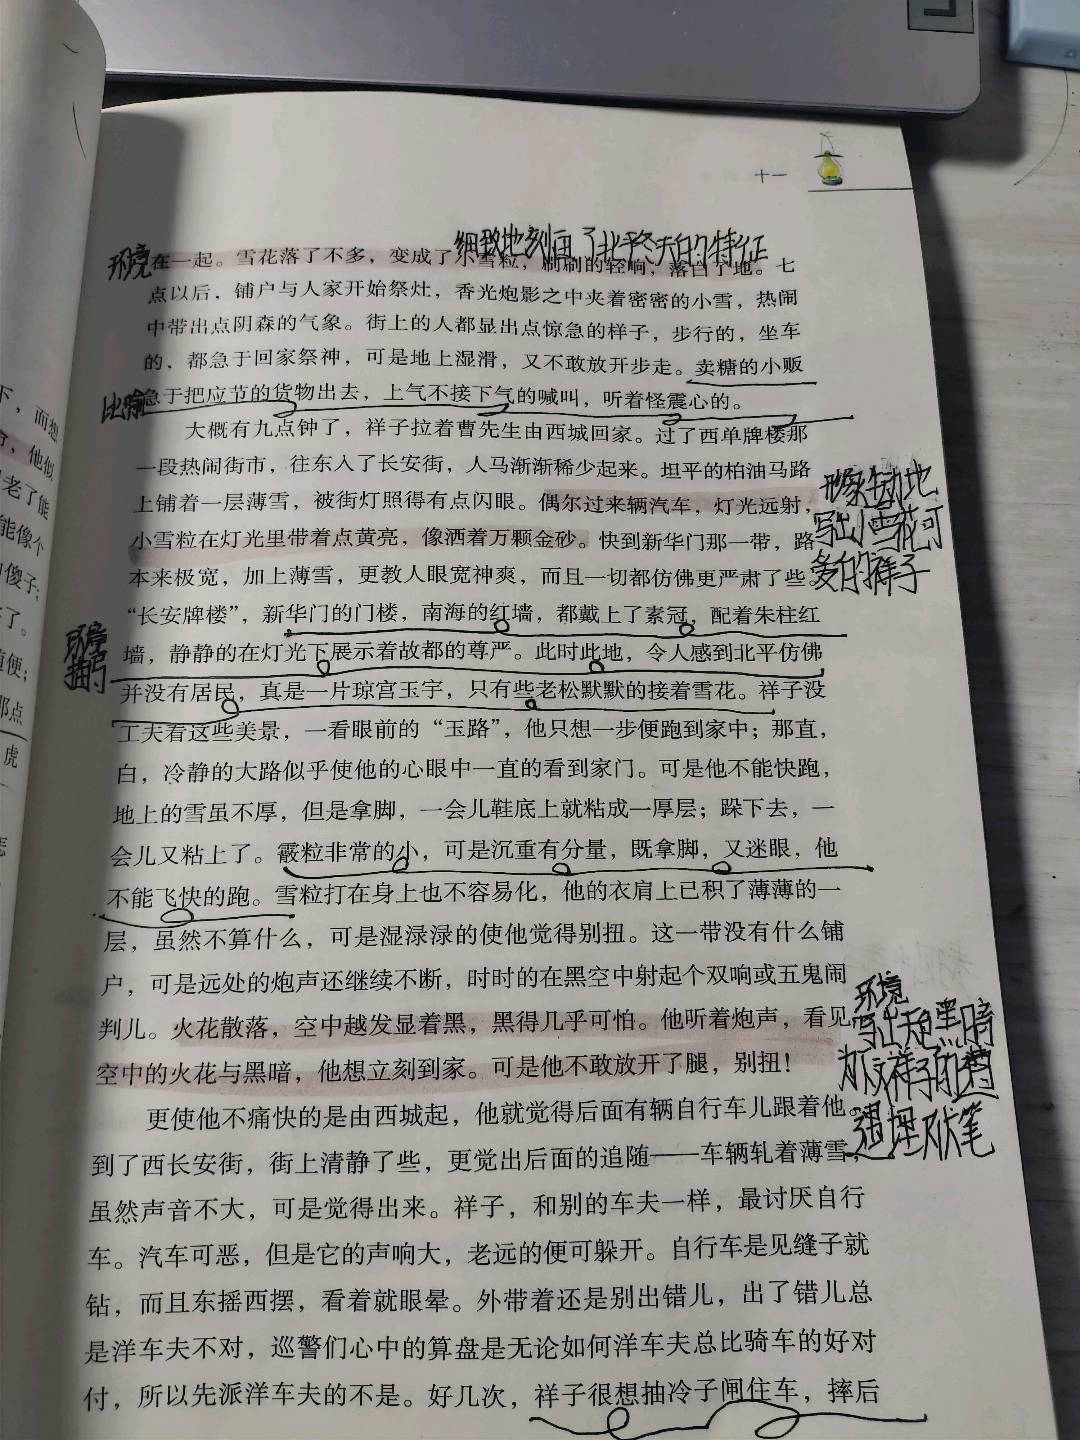 十一
细致地刻画了北平冬天的特征
环境
在一起。雪花落了不多，变成了小雪粒，刷刷的轻响，落白了地。七
点以后，铺户与人家开始祭灶，香光炮影之中夹着密密的小雪，热闹
中带出点阴森的气象。街上的人都显出点惊急的样子，步行的，坐车
的，都急于回家祭神，可是地上湿滑，又不敢放开步走。卖糖的小贩
比喻
急于把应节的货物出去，上气不接下气的喊叫，听着怪震心的。
大概有九点钟了，祥子拉着曹先生由西城回家。过了西单牌楼那
一段热闹街市，往东入了长安街，人马渐渐稀少起来。坦平的柏油马路
上铺着一层薄雪，被街灯照得有点闪眼。偶尔过来辆汽车，灯光远射，
小雪粒在灯光里带着点黄亮，像洒着万颗金砂。快到新华门那一带，路
本来极宽，加上薄雪，更教人眼宽神爽，而且一切都仿佛更严肃了些。
形象生动地
写出小雪花可
“长安牌楼”，新华门的门楼，南海的红墙，都戴上了素冠，配着朱柱红
墙，静静的在灯光下展示着故都的尊严。此时此地，令人感到北平仿佛
并没有居民，真是一片琼宫玉宇，只有些老松默默的接着雪花。祥子没
工夫看这些美景，一看眼前的“玉路”，他只想一步便跑到家中；那直，
白，冷静的大路似乎使他的心眼中一直的看到家门。可是他不能快跑，
地上的雪虽不厚，但是拿脚，一会儿鞋底上就粘成一厚层；跺下去，一
会儿又粘上了。霰粒非常的小，可是沉重有分量，既拿脚，又迷眼，他
不能飞快的跑。雪粒打在身上也不容易化，他的衣肩上已积了薄薄的一
层，虽然不算什么，可是湿渌渌的使他觉得别扭。这一带没有什么铺
户，可是远处的炮声还继续不断，时时的在黑空中射起个双响或五鬼闹
判儿。火花散落，空中越发显着黑，黑得几乎可怕。他听着炮声，看见
空中的火花与黑暗，他想立刻到家。可是他不敢放开了腿，别扭！
环境
写出天色黑暗
为后文祥子的遭
遇埋下伏笔
更使他不痛快的是由西城起，他就觉得后面有辆自行车儿跟着他。
到了西长安街，街上清静了些，更觉出后面的追随——车辆轧着薄雪，
虽然声音不大，可是觉得出来。祥子，和别的车夫一样，最讨厌自行
车。汽车可恶，但是它的声响大，老远的便可躲开。自行车是见缝子就
钻，而且东摇西摆，看着就眼晕。外带着还是别出错儿，出了错儿总
是洋车夫不对，巡警们心中的算盘是无论如何洋车夫总比骑车的好对
付，所以先派洋车夫的不是。好几次，祥子很想抽冷子闸住车，摔后
下，而想
他似
老了能
能像个
傻子；
了。
随便；
那点
虎